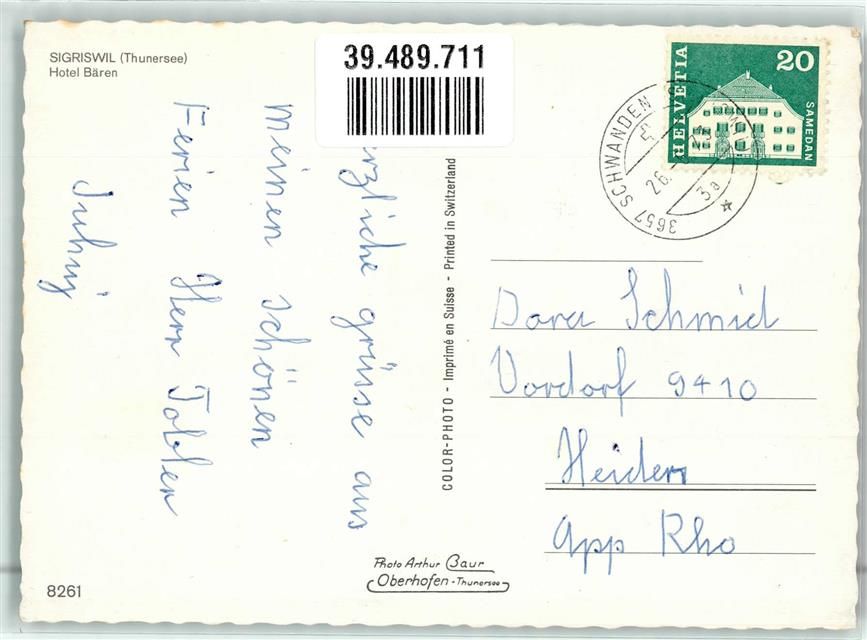 SIGRISWIL (Thunersee)
Hotel Bären
39.489.711
HELVETIA
20
SAMEDAN
3657 SCHWANDEN
26.
73
rzliche grüsse aus
meinen schönen
Ferien Herr Tobler
COLOR-PHOTO - Imprimé en Suisse - Printed in Switzerland
Dora Schmid
Vordorf 9410
Heiden
App Rho
Photo Arthur Baur
Oberhofen-Thunersee
8261